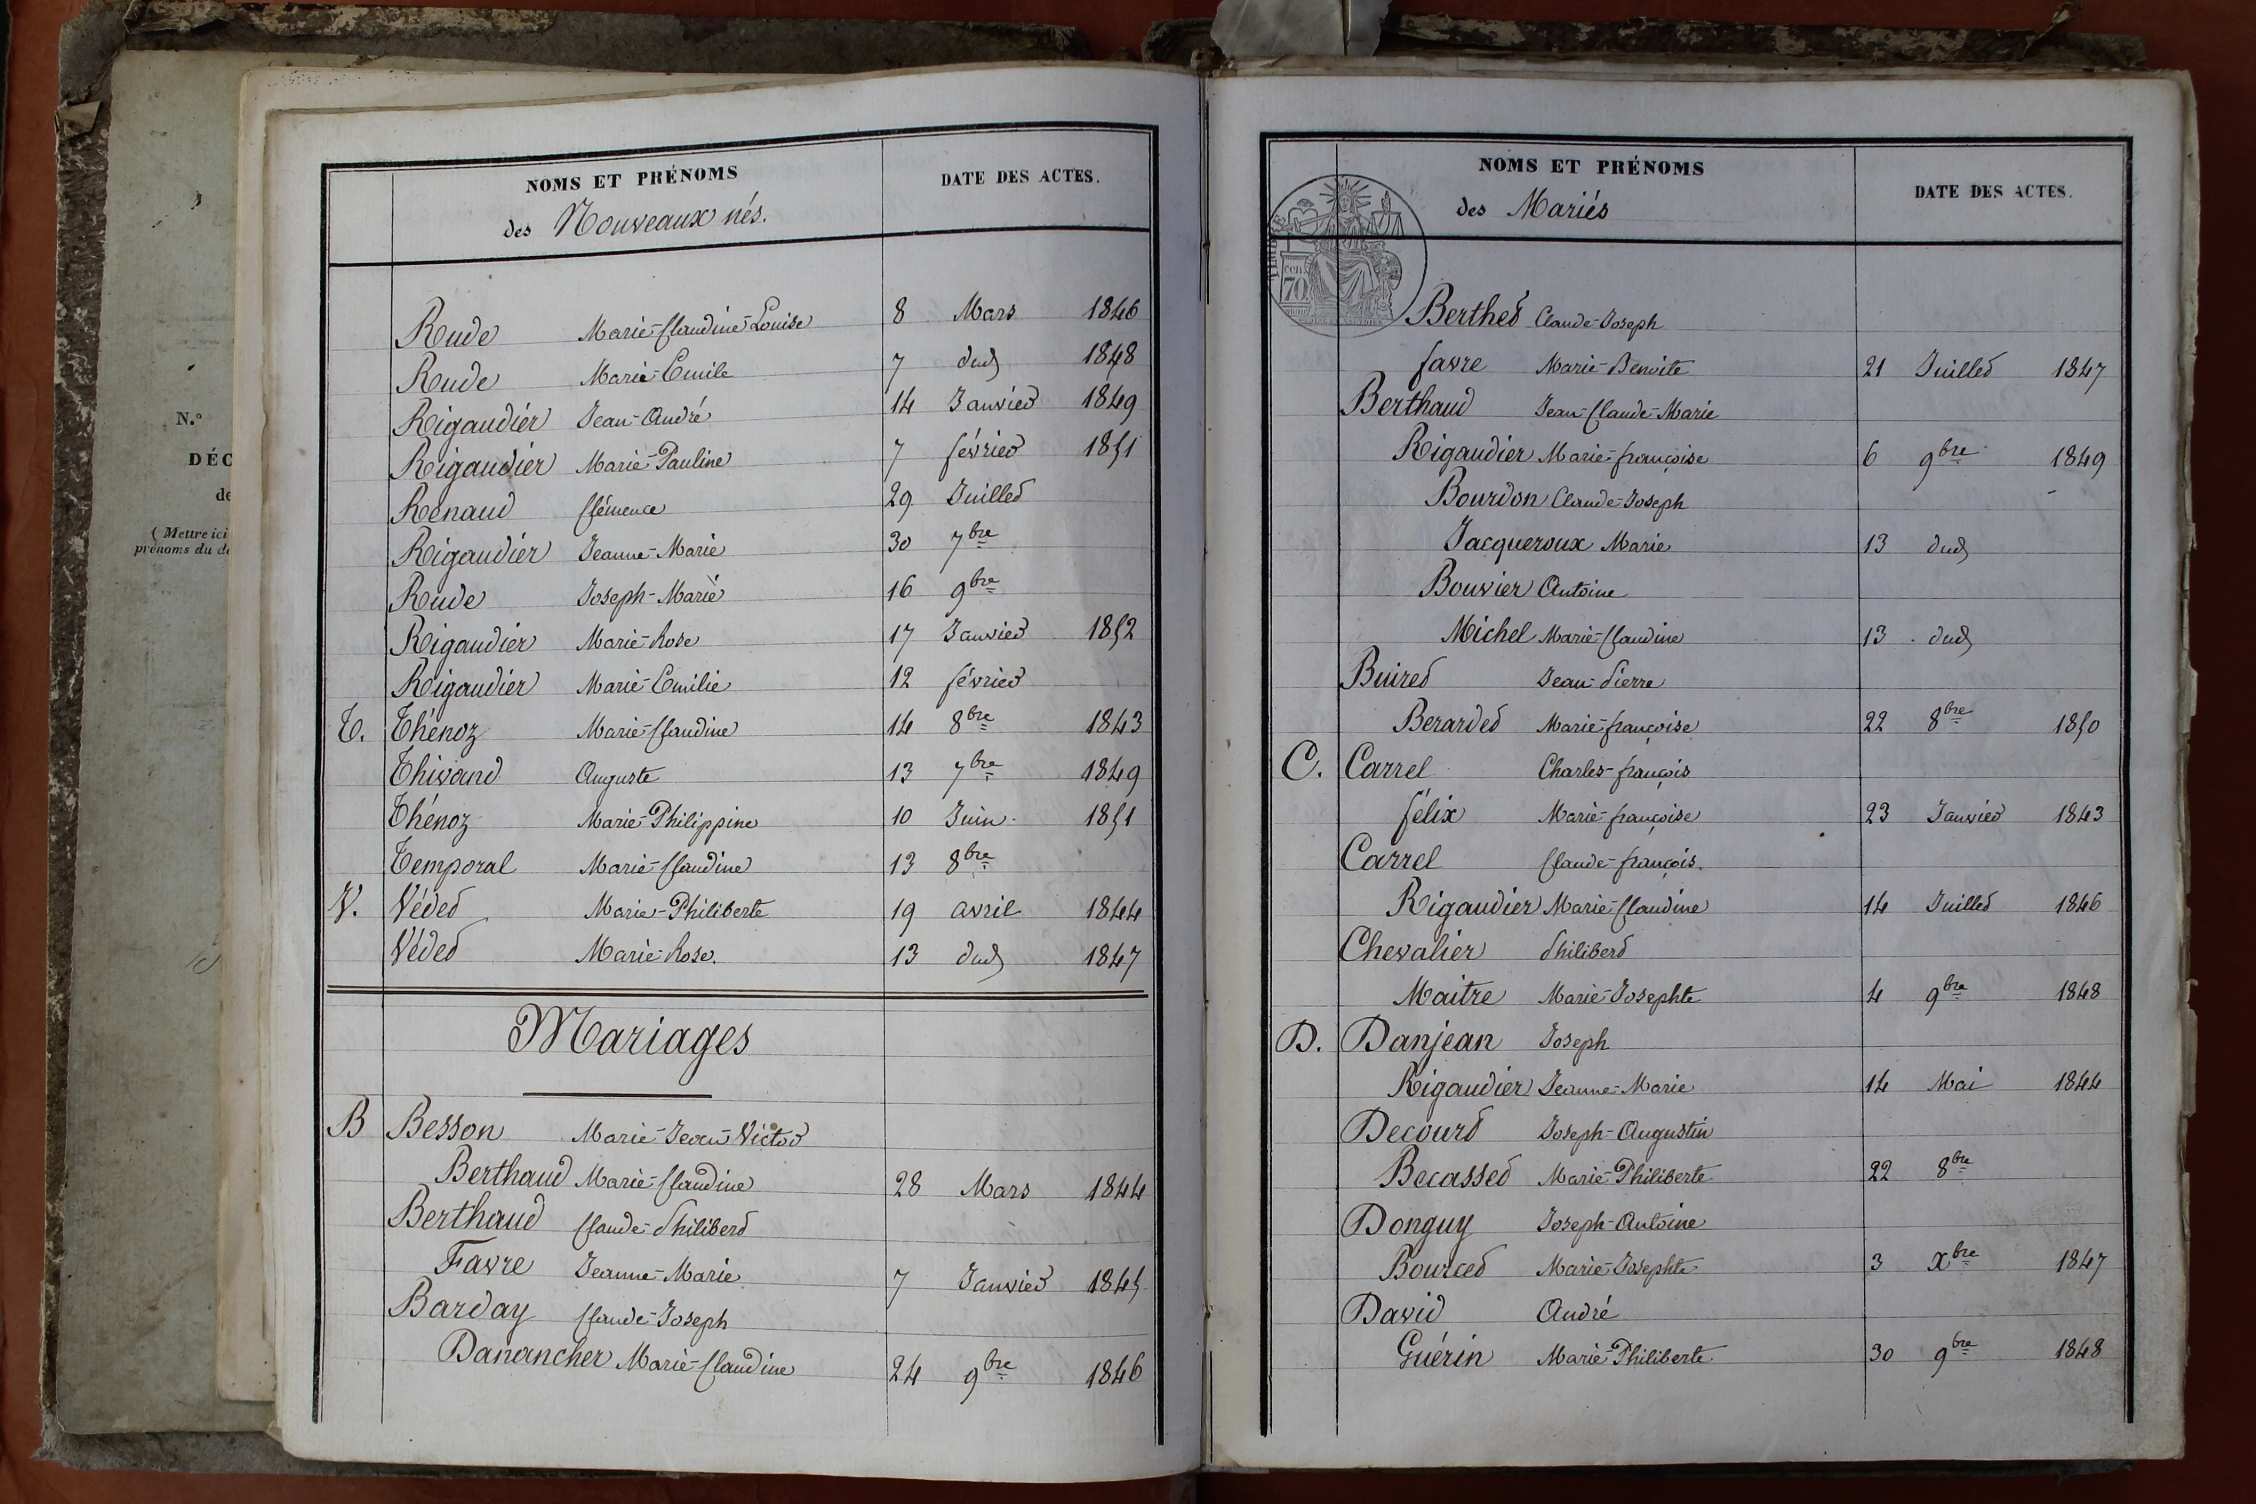 N.°
DÉC
de
( Mettre ici
prénoms du de
NOMS ET PRÉNOMS
des Nouveaux nés.
DATE DES ACTES.
Rude Marie-Claudine-Louise 8 Mars 1846
Rude Marie-Emile 7 dud 1848
Rigaudier Jean-André 14 Janvier 1849
Rigaudier Marie-Pauline 7 février 1851
Renaud Clémence 29 Juillet
Rigaudier Jeanne-Marie 30 7bre
Rude Joseph-Marie 16 9bre
Rigaudier Marie-Rose 17 Janvier 1852
Rigaudier Marie-Emilie 12 février
T. Thénoz Marie-Claudine 14 8bre 1843
Thivand Auguste 13 7bre 1849
Thénoz Marie-Philippine 10 Juin 1851
Temporal Marie-Claudine 13 8bre
V. Védet Marie-Philiberte 19 avril 1844
Védet Marie-Rose. 13 dud 1847
Mariages
B Besson Marie-Jean-Victor
Berthaud Marie-Claudine 28 Mars 1844
Berthaud Claude-Philibert
Favre Jeanne-Marie 7 Janvier 1845
Barday Claude-Joseph
Danancher Marie-Claudine 24 9bre 1846
NOMS ET PRÉNOMS
des Mariés
DATE DES ACTES.
cent
70
Berthet Claude-Joseph
favre Marie-Benoite 21 Juillet 1847
Berthaud Jean-Claude-Marie
Rigaudier Marie-françoise 6 9bre 1849
Bourdon Claude-Joseph
Jacqueroux Marie 13 dud
Bouvier Antoine
Michel Marie-Claudine 13 dud
Buiret Jean-Pierre
Berardet Marie-françoise 22 8bre 1850
C. Carrel Charles-françois
félix Marie-françoise 23 Janvier 1843
Carrel Claude-françois.
Rigaudier Marie-Claudine 14 Juillet 1846
Chevalier Philibert
Maitre Marie-Josephte 4 9bre 1848
D. Danjean Joseph
Rigaudier Jeanne-Marie 14 Mai 1844
Decourt Joseph-Augustin
Becasset Marie-Philiberte 22 8bre
Donguy Joseph-Antoine
Bourcet Marie-Josephte 3 Xbre 1847
David André
Guérin Marie-Philiberte 30 9bre 1848